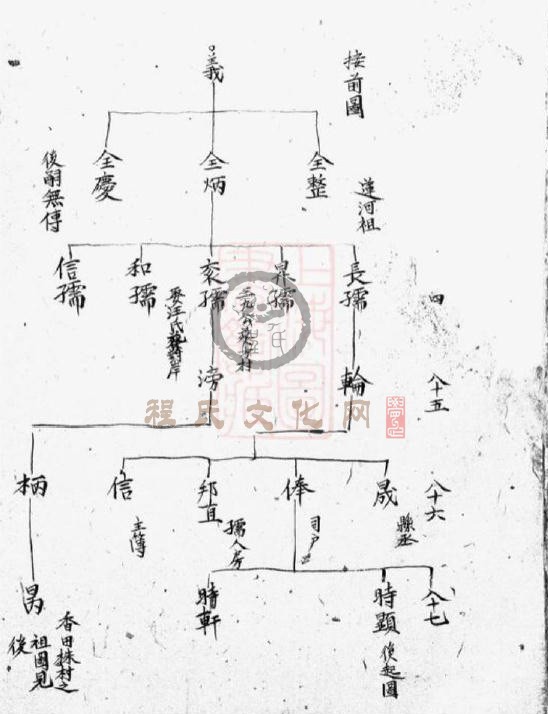 接前圖
義
全整
全炳
全慶
後嗣無傳
蓮河祖
長孺
杲孺
衮孺
和孺
信孺
四
輪
滂
八十五
程氏文化网
晟
俸
邦直
信
柄
八十六
縣丞
司戶
孺人房
主簿
八十七
時顯
後起圖
時軒
昺
香田株村之
祖圖見
後